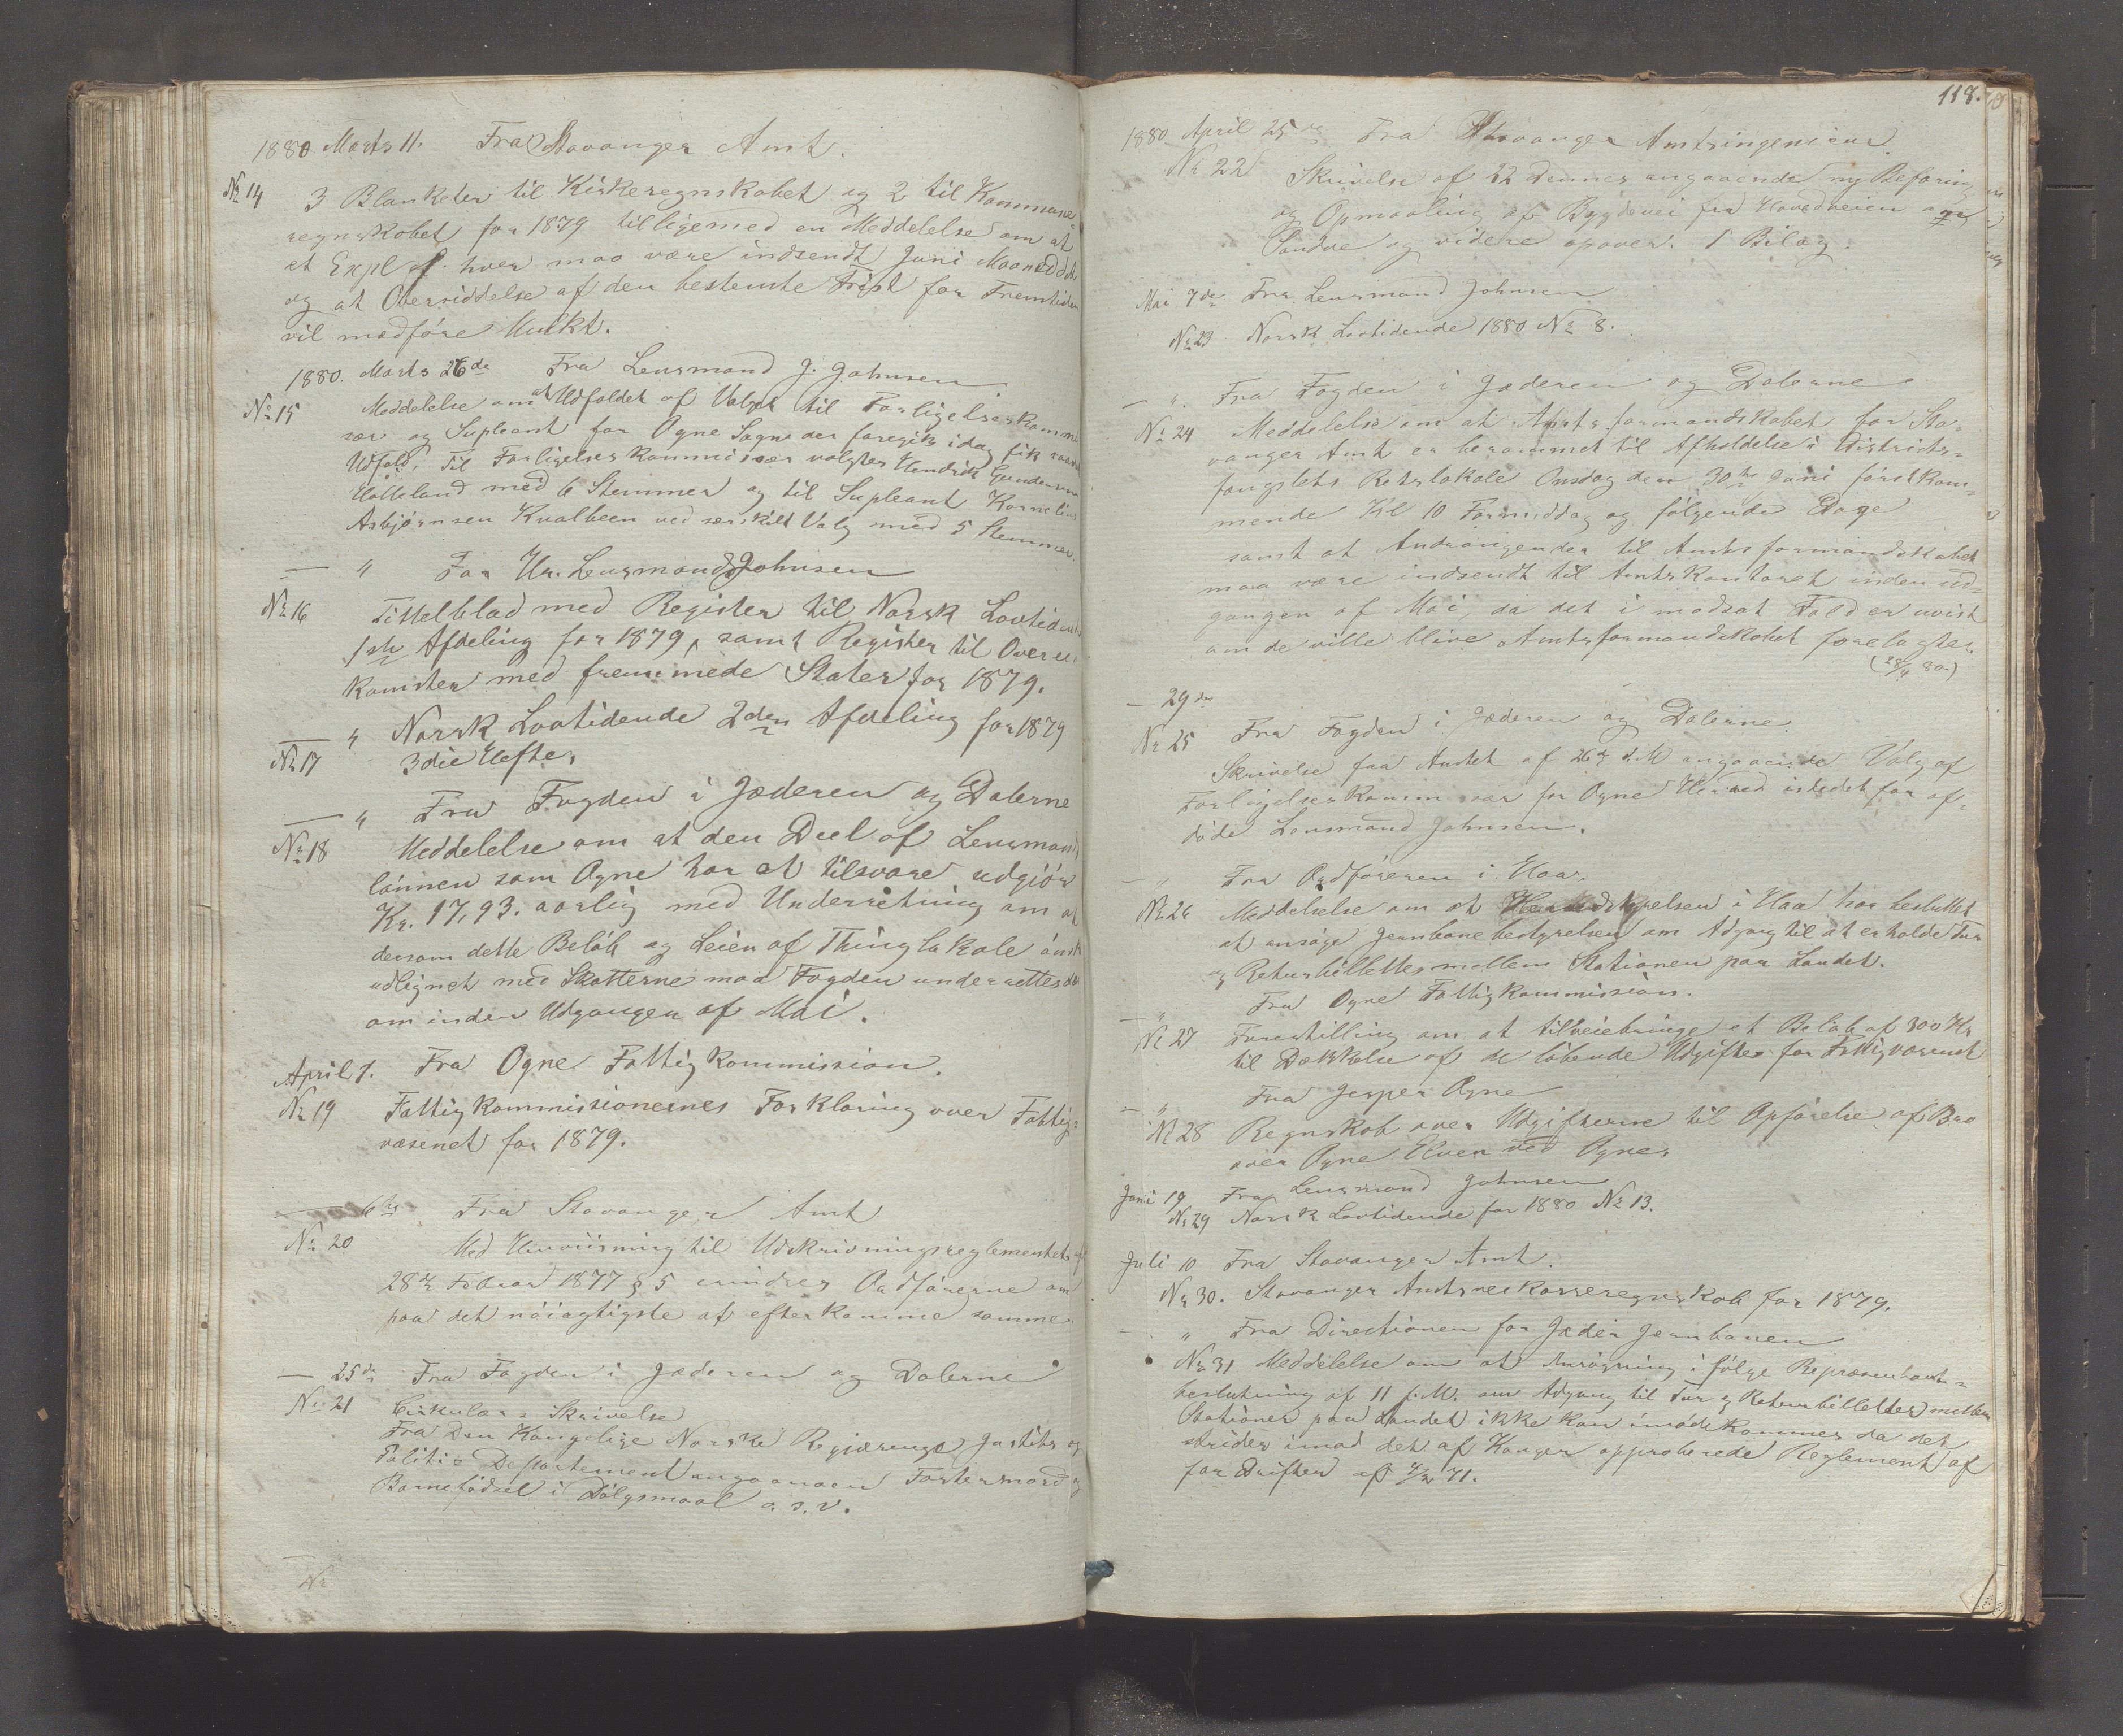 1880 Marts 11. Fra Stavanger Amt.
No 14 3 Blanketer til Kirkeregnskabet og 2 til Kommune
regnskabet for 1879 tilligemed en Meddelelse om at
et Expl af hver maa være indsendt Juni Maaned
og at Overskriddelse af den bestemte Frist for Fremtiden
vil medføre Mulkt.
1880. Marts 26de Fra Lensmand J. Johnsen
No 15 Meddelelse om at Udfaldet af Valget til Forligelseskommis
sær og Supleant for Ogne Sogn der foregik idag fik saadant
Udfald, Til Forligelseskommissær valgtes Hendrik Gundersen
Holleland med 6 Stemmer og til Supleant Kornelius
Asbjørnsen Kvalbeen ved særskilt Valg med 5 Stemmer.
— " Fra Hr. Lensmand Johnsen
No 16 Tittelblad med Register til Norsk Lovtidende
1ste Afdeling for 1879, samt Register til Overens
komster med fremmede Stater for 1879.
— " Norsk Lovtidende 2den Afdeling for 1879
No 17 3die Hefte.
— " Fra Fogden i Jæderen og Dalerne
No 18 Meddelelse om at den Deel af Lensmands
lønnen som Ogne har at tilsvare udgjør
Kr. 17,93. aarlig med Underretning om at
dersom dette Beløb og Leien af Thinglokale ønsk
udlignet med Skatterne maa Fogden underrettes der
om inden Udgangen af Mai.
April 1. Fra Ogne Fattigkommission.
No 19 Fattigkommissionernes Forklaring over Fattig-
væsenet for 1879.
— 6te Fra Stavanger Amt
No 20 Med Henviisning til Udskrivningsreglementet af
28de Februar 1877 § 5 erindres Ordførerne om
paa det nøiagtigste at efterkomme samme.
— 25de Fra Fogden i Jæderen og Dalerne
No 21 Cirkulær-Skrivelse
Fra Den Kongelige Norske Regjærings Justits og
Politi-Departement angaaende Fostermord og
Barnefødsel i Dølgsmaal o. s. v.
No
118.
1880 April 25de Fra Stavanger Amtsingenieur.
No 22 Skrivelse af 22 Dennes angaaende ny Befaring
og Opmaaling af Bygdevei fra Hovedveien
Sandve og videre opover. 1 Bilag.
Mai 7de Fra Lensmand Johnsen
No 23 Norsk Lovtidende 1880 No 8.
— " Fra Fogden i Jæderen og Dalerne
No 24 Meddelelse om at Amtsformandskabet for Sta-
vanger Amt er berammet til Afholdelse i Districts-
fængslets Retslokale Onsdag den 30te Juni førstkom-
mende Kl 10 Formiddag og følgende Dage
samt at Andragender til Amtsformandskabet
maa være indsendt til Amtskontoret inden Ud-
gangen af Mai, da det i modsat Fald er uvist
om de ville blive Amtsformandskabet forelagte.
(28/4 80)
— 29de
No 25 Fra Fogden i Jæderen og Dalerne.
Skrivelse fra Amtet af 26de d. M angaaende Valg af
Forligelseskommissær for Ogne Herred istedet for af-
døde Lensmand Johnsen.
— " Fra Ordføreren i Haa.
No 26 Meddelelse om at Heredsstyrelsen i Haa har besluttet
at ansøge Jernbanebestyrelsen om Adgang til at erholde Tur
og Returbilletter mellem Stationen paa Landet.
— " Fra Ogne Fattigkommission.
No 27 Forestilling om at tilveiebringe et Beløb af 300 Kr
til Dækkelse af de løbende Udgifter for Fattigvæsenet
— " Fra Jesper Ogne
No 28 Regnskab over Udgifterne til Opførelse af Bro
over Ogne Elven ved Ogne.
Juni 19 Fra Lensmand Johnsen
No 29 Norsk Lovtidende for 1880 No 13.
Juli 10 Fra Stavanger Amt.
No 30. Stavanger Amtsveskasseregnskab for 1879.
— " Fra Directionen for Jæder Jernbanen
No 31 Meddelelse om at Ansøgning i følge Repræsentant-
beslutning af 11 f. M. om Adgang til Tur og Returbilletter mellem
Stationer paa Landet ikke kan imødekommes da det
strider imod det af Kongen approberede Reglement af
for Driften af 71.